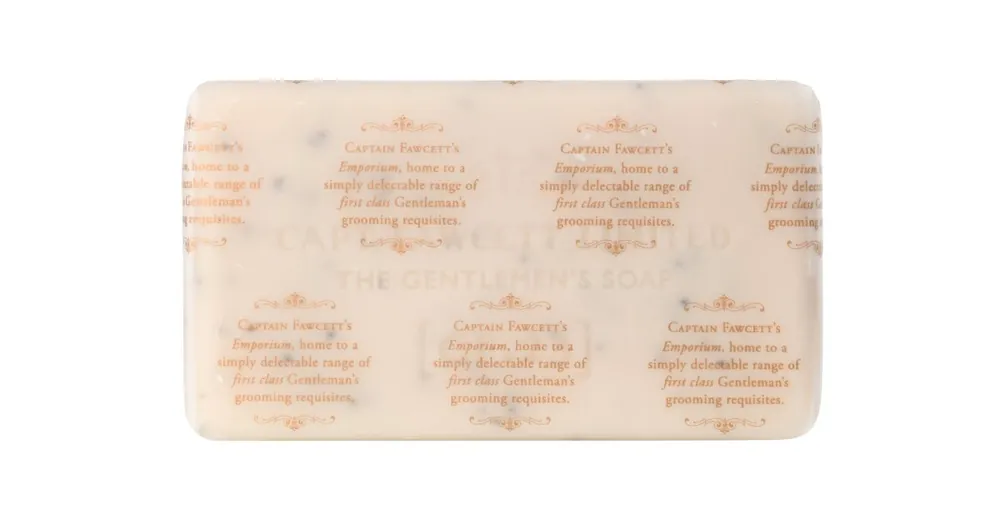 CAPTAIN FAWCETT'S
Emporium, home to a
simply delectable range of
first class Gentleman's
grooming requisites.
CAPTAIN FAWCETT'S
Emporium, home to a
simply delectable range of
first class Gentleman's
grooming requisites.
CAPTAIN FAWCETT'S
Emporium, home to a
simply delectable range of
first class Gentleman's
grooming requisites.
CAPTAIN
Emporium, h
simply delectab
first class
grooming
THE GENTLEMEN'S SOAP
CAPTAIN FAWCETT'S
Emporium, home to a
simply delectable range of
first class Gentleman's
grooming requisites.
CAPTAIN FAWCETT'S
Emporium, home to a
simply delectable range of
first class Gentleman's
grooming requisites.
CAPTAIN FAWCETT'S
Emporium, home to a
simply delectable range of
first class Gentleman's
grooming requisites.